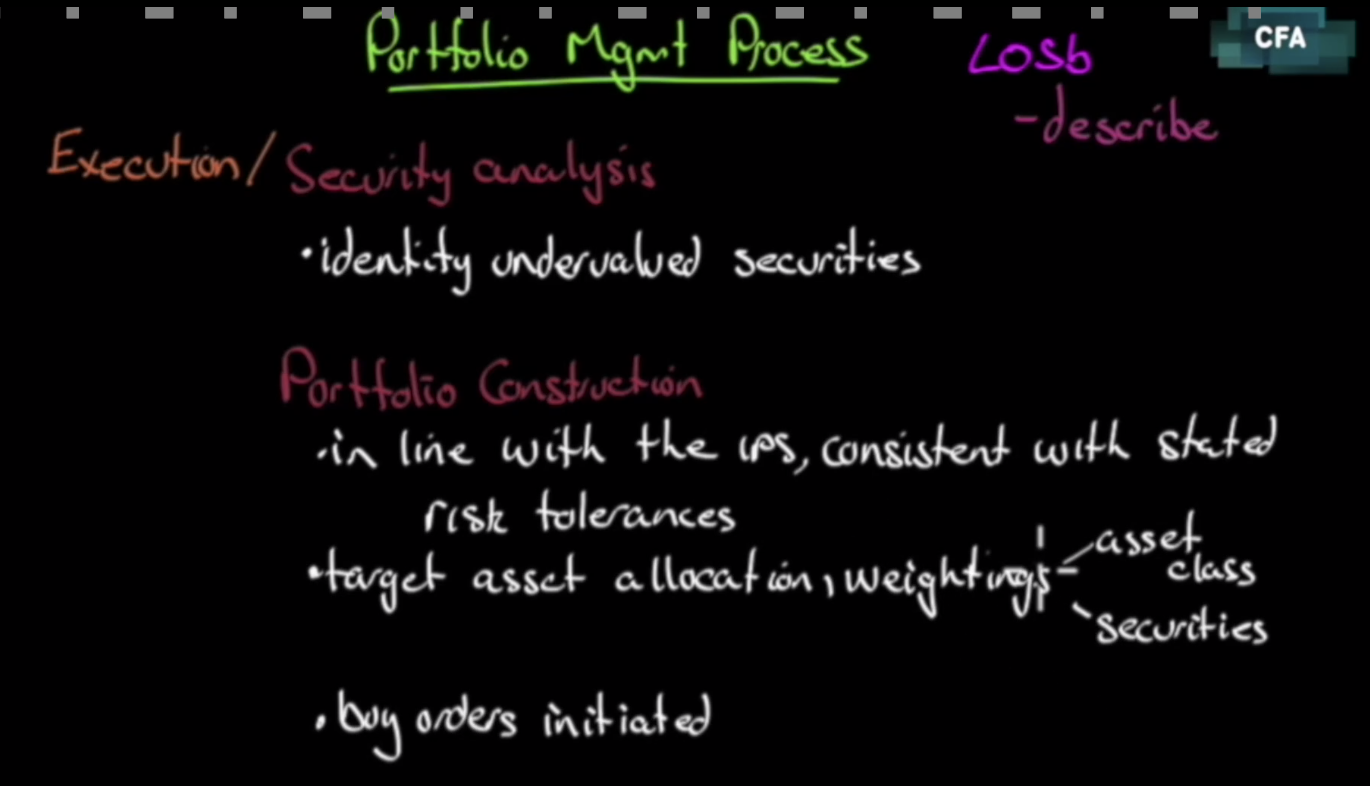 Portfolio Mgmt Process
LOSb
CFA
-describe
Execution/ Security analysis
•identity undervalued securities
Portfolio Construction
•in line with the IPS, consistent with stated
risk tolerances
•target asset allocation, weightings - asset
class
securities
•buy orders initiated